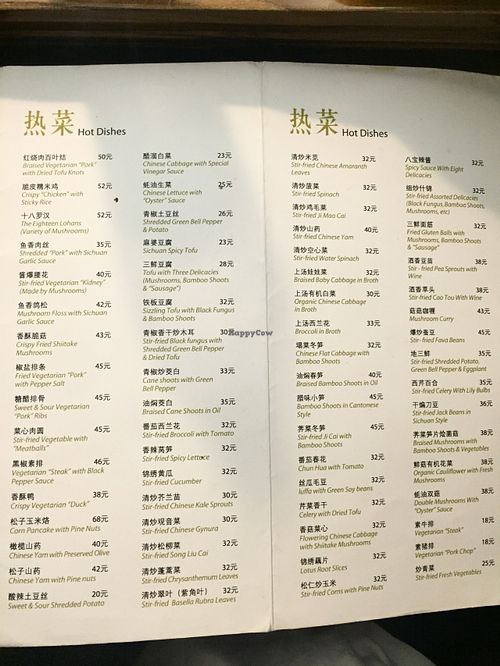 热菜 Hot Dishes
红烧肉百叶结 50元
Braised Vegetarian "Pork"
with Dried Tofu Knots
脆皮糯米鸡 52元
Crispy "Chicken" with
Sticky Rice
十八罗汉 52元
The Eighteen Lohans
(Variety of Mushrooms)
鱼香肉丝 35元
Shredded "Pork" with Sichuan
Garlic Sauce
酱爆腰花 40元
Stir-fried Vegetarian "Kidney"
(Made by Mushrooms)
鱼香鸽松 42元
Mushroom Floss with Sichuan
Garlic Sauce
香酥脆菇 43元
Crispy Fried Shiitake
Mushrooms
椒盐排条 45元
Fried Vegetarian "Pork"
with Pepper Salt
糖醋排骨 45元
Sweet & Sour Vegetarian
"Pork" Ribs
菜心肉圆 45元
Stir-fried Vegetable with
"Meatballs"
黑椒素排 46元
Vegetarian "Steak" with Black
Pepper Sauce
香酥鸭 38元
Crispy Vegetarian "Duck"
松子玉米烙 68元
Corn Pancake with Pine Nuts
橄榄山药 40元
Chinese Yam with Preserved Olive
松子山药 42元
Chinese Yam with Pine nuts
酸辣土豆丝 20元
Sweet & Sour Shredded Potato
醋溜白菜 23元
Chinese Cabbage with Special
Vinegar Sauce
蚝油生菜 25元
Chinese Lettuce with
"Oyster" Sauce
青椒土豆丝 26元
Shredded Green Bell Pepper
& Potato
麻婆豆腐 23元
Sichuan Spicy Tofu
三鲜豆腐 28元
Tofu with Three Delicacies
(Mushrooms, Bamboo Shoots
& "Sausage")
铁板豆腐 32元
Sizzling Tofu with Black Fungus
& Bamboo Shoots
青椒香干炒木耳 30
Stir-fried Black fungus with
Shredded Green Bell Pepper
& Dried Tofu
HappyCow
青椒炒茭白 32元
Cane shoots with Green
Bell Pepper
油焖茭白 35元
Braised Cane Shoots in Oil
番茄西兰花 32元
Stir-fried Broccoli with Tomato
香辣莴笋 32元
Stir-fried Spicy Lettuce
锦绣黄瓜 32元
Stir-fried Cucumber
清炒芥兰苗 30元
Stir-fried Chinese Kale Sprouts
清炒观音菜 30元
Stir-fried Chinese Gynura
清炒松柳菜 32元
Stir-fried Song Liu Cai
清炒蓬蒿菜 32元
Stir-fried Chrysanthemum Leaves
清炒翠叶（紫角叶） 32元
Stir-fried Basella Rubra Leaves
热菜 Hot Dishes
清炒米苋 32元
Stir-fried Chinese Amaranth
Leaves
清炒菠菜 32元
Stir-fried Spinach
清炒鸡毛菜 32元
Stir-fried Ji Mao Cai
清炒山药 40元
Stir-fried Chinese Yam
清炒空心菜 32元
Stir-fried Water Spinach
上汤娃娃菜 32元
Braised Baby Cabbage in Broth
上汤有机白菜 30元
Organic Chinese Cabbage
in Broth
上汤西兰花 33元
Broccoli in Broth
塌菜冬笋 32元
Chinese Flat Cabbage with
Bamboo Shoots
油焖春笋 40元
Braised Bamboo Shoots in Oil
腊味小笋 45元
Bamboo Shoots in Cantonese
Style
荠菜冬笋 45元
Stir-fried Ji Cai with
Bamboo Shoots
番茄春花 32元
Chun Hua with Tomato
丝瓜毛豆 32元
luffa with Green Soy beans
芹菜香干 32元
Celery with Dried Tofu
香菇菜心 32元
Flowering Chinese Cabbage
with Shiitake Mushrooms
锦绣藕片 32元
Lotus Root Slices
松仁炒玉米 32元
Stir-fried Corns with Pine Nuts
八宝辣酱 32元
Spicy Sauce With Eight
Delicacies
细炒什锦 32元
Stir-fried Assorted Delicacies
(Black Fungus, Bamboo Shoots,
Mushrooms, etc)
三鲜面筋 32元
Fried Gluten Balls with
Mushrooms, Bamboo Shoots
& "Sausage"
酒香豆苗 38元
Stir - fried Pea Sprouts with
Wine
酒香草头 38元
Stir-fried Cao Tou With Wine
菇菇咖喱 43元
Mushroom Curry
爆炒蚕豆 45元
Stir-fried Fava Beans
地三鲜 35元
Stir-fried Shredded Potato,
Green Bell Pepper & Eggplant
西芹百合 35元
Stir-fried Celery With Lily Bulbs
干煸刀豆 36元
Stir-fried Jack Beans in
Sichuan Style
荠菜笋片烩菌菇 38元
Braised Mushrooms with
Bamboo Shoots & Vegetables
鲜菇有机花菜 38元
Organic Cauliflower with Fresh
Mushrooms
蚝油双菇 38元
Double Mushrooms With
"Oyster" Sauce
素牛排 18元
Vegetarian "Steak"
素猪排 18元
Vegetarian "Pork Chop"
炒青菜 25元
Stir-fried Fresh Vegetables